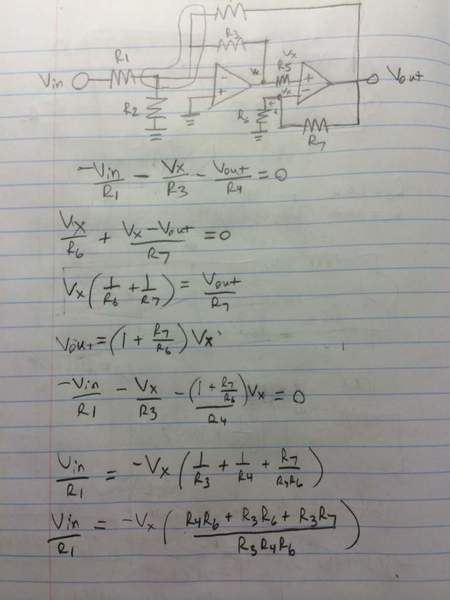 R3
R1
Vx
Vx
R5
Vin
Vout
R2
Vx
R6
R7
-Vin/R1 - Vx/R3 - Vout/R4 = 0
Vx/R6 + Vx-Vout/R7 = 0
Vx(1/R6 + 1/R7) = Vout/R7
Vout = (1 + R7/R6) Vx
-Vin/R1 - Vx/R3 - (1 + R7/R6)Vx/R4 = 0
Vin/R1 = -Vx(1/R3 + 1/R4 + R7/R4R6)
Vin/R1 = -Vx(R4R6 + R3R6 + R3R7/R3R4R6)